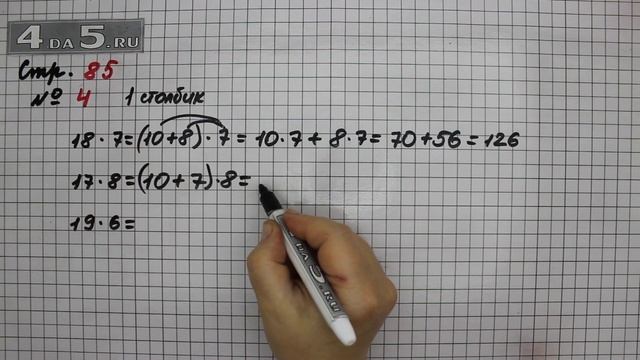 4 DA 5.RU
Стр. 85
№ 4 1 столбик
18 · 7 = (10 + 8) · 7 = 10 · 7 + 8 · 7 = 70 + 56 = 126
17 · 8 = (10 + 7) · 8 =
19 · 6 =
4 DA 5.RU